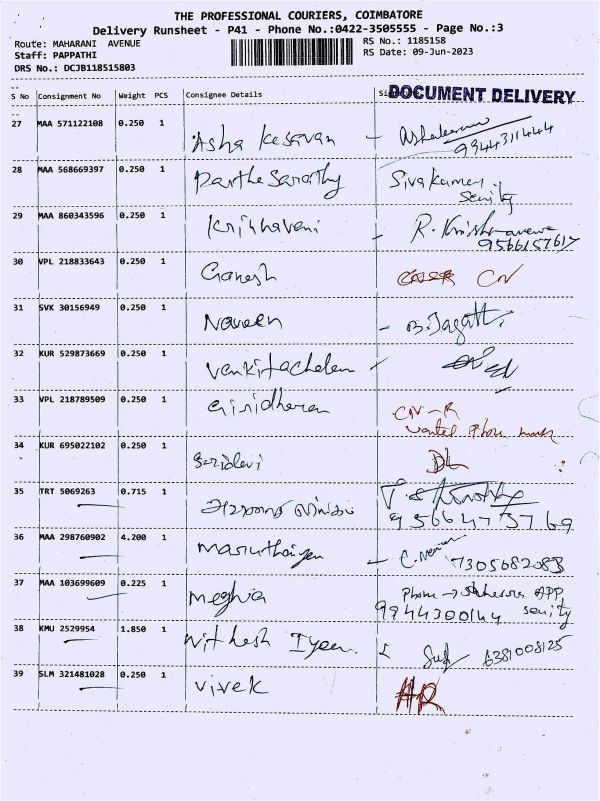 THE PROFESSIONAL COURIERS, COIMBATORE
Delivery Runsheet - P41 - Phone No.:0422-3505555 - Page No.:3
Route: MAHARANI AVENUE RS No.: 1185158
Staff: PAPPATHI RS Date: 09-Jun-2023
DRS No.: DCJB118515803
S No Consignment No Weight PCS Consignee Details DOCUMENT DELIVERY
27 MAA 571122108 0.250 1 Asha Kesavan
9944311444
28 MAA 568669397 0.250 1 Parthe Sarathy Sivakumar
Senity
29 MAA 860343596 0.250 1 Krishnaveni R. Krishnaveni
9566157617
30 VPL 218833643 0.250 1 Ganesh CN
31 SVK 30156949 0.250 1 Naveen B. Jagatt
32 KUR 529873669 0.250 1 Venkitachelem
33 VPL 218789509 0.250 1 Giridheren CN-R
wanted Phone
34 KUR 695022102 0.250 1 Sridevi DL
35 TRT 5069263 0.715 1
9566473769
36 MAA 298760902 4.200 1 C. 7305682083
37 MAA 103699609 0.225 1 Meghia Phone → APP
9944300144 senity
38 KMU 2529954 1.850 1 Nithesh Iyer. 6381008125
39 SLM 321481028 0.250 1 Vivek HR